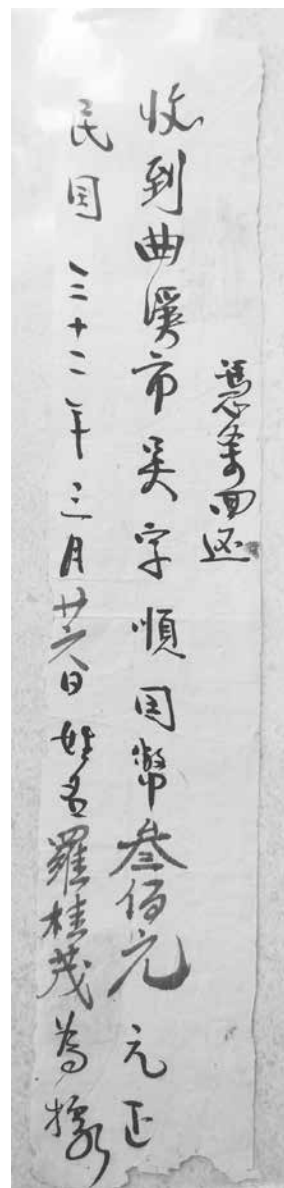 憑条回还
收到曲溪市吴字順国幣叁佰元元正
民国三十二年三月廿六日姓名羅桂茂為據